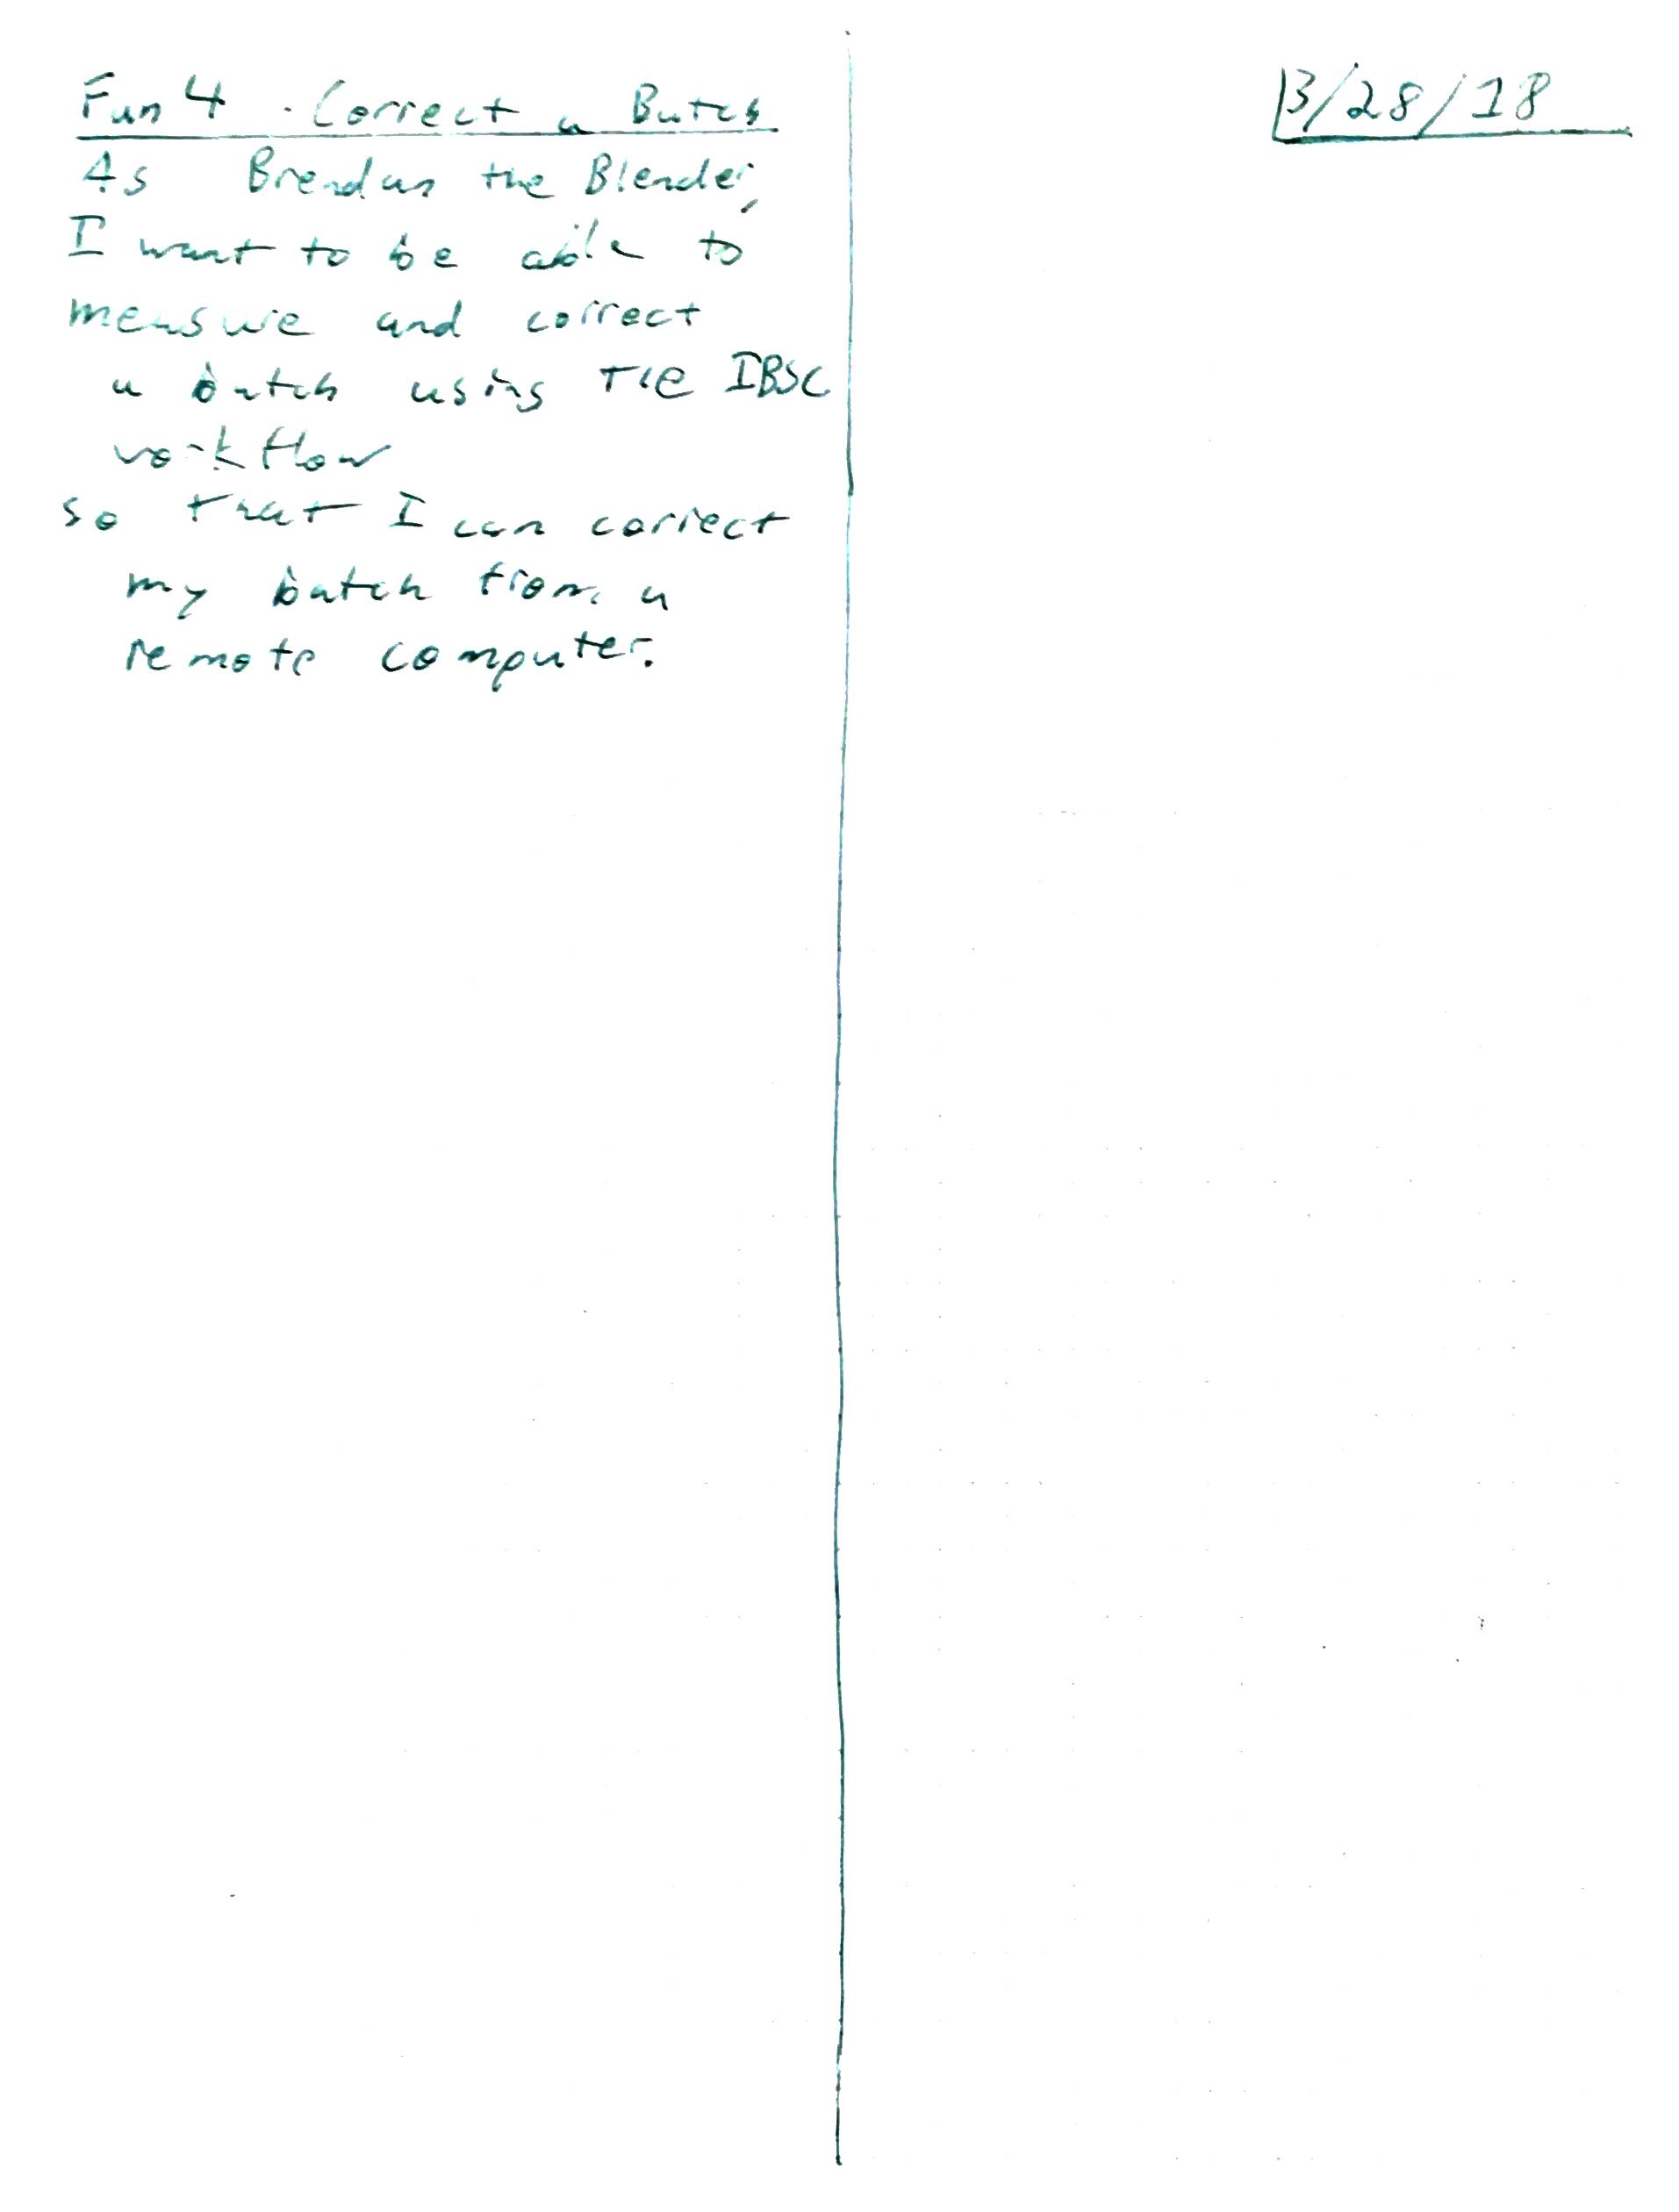 Fun 4 - Correct a Batch
3/28/18
As Brendan the Blender,
I want to be able to
measure and correct
a batch using the IBSC
workflow
so that I can correct
my batch from a
remote computer.